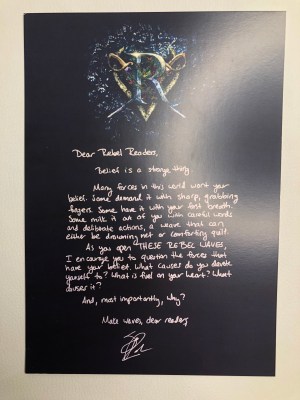 R
Dear Rebel Readers,
Belief is a strange thing.
Many forces in this world want your
belief. Some demand it with sharp, grabbing
fingers. Some have it with your first breath.
Some milk it out of you with careful words
and deliberate actions, a weave that can
either be drowning net or comforting quilt.
As you open THESE REBEL WAVES,
I encourage you to question the forces that
have your belief. What causes do you devote
yourself to? What is fuel on your heart? What
douses it?
And, most importantly, why?
Make waves, dear reader,